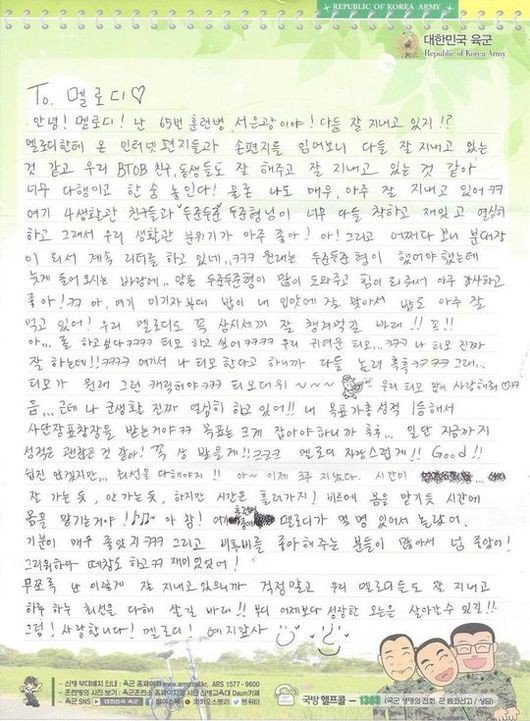 REPUBLIC OF KOREA ARMY
대한민국 육군
Republic of Korea Army
To. 멜로디♡
안녕! 멜로디! 난 65번 훈련병 서은광이야! 다들 잘 지내고 있지!?
멜로디한테 온 인터넷 편지들과 손편지를 읽어보니 다들 잘 지내고 있는
것 같고 우리 BTOB 친구, 동생들도 잘 해주고 잘 지내고 있는 것 같아
너무 다행이고 한 숨 놓인다! 물론 나도 매우, 아주 잘 지내고 있어ㅋㅋ
여기 4생활관 친구들과 "두준두준" 두준형님이 너무 다들 착하고 재밌고 열심히
하고 그래서 우리 생활관 분위기가 아주 좋아! 아! 그리고 어쩌다 보니 분대장
이 되서 계속 리더를 하고 있네..ㅋㅋㅋ 원래는 두준두준형이 했어야 했는데
늦게 들어오시는 바람에.. 암튼 두준두준형이 많이 도와주고 힘이 되줘서 아주 감사하고
좋아!ㅋㅋ 아, 여기 미기자부대 밥이 내 입맛에 잘 맞아서 밥도 아주 잘
먹고 있어! 우리 멜로디도 꼭 삼시세끼 잘 챙겨먹길 바래!! 꼭!!
아... 롤 하고싶다ㅋㅋㅋㅋ 티모 하고 싶어ㅋㅋㅋㅋ 우리 귀여운 티모...ㅋㅋㅋ 나 티모 진짜
잘 하는데!!ㅋㅋㅋㅋ 여기서 나 티모한다고 하니까 다들 놀려 흑흑ㅋㅋㅋㅋ 그래..
티모가 원래 그런 캐릭터야ㅋㅋㅋ 티모대위 ~~~ 우리 티모 많이 사랑해줘♡ㅋㅋ
음... 근데 나 군생활 진짜 열심히 하고 있어!! 내 목표가 종합성적 1등해서
사단장표창장을 받는거야ㅋㅋ 목표는 크게 잡아야하니까 흐흐... 일단 지금까지
성적은 괜찮은 것 같아! 꼭 상 받을게!!ㅋㅋㅋ 멜로디 자랑스럽게!! Good!!
쉽진 않겠지만... 최선을 다해야지!! 아~ 이제 3주 지났다. 시간이
잘 가는 듯, 안 가는 듯, 하지만 시간은 흘러가지! 비트에 몸을 맡기듯 시간에
몸을 맡기는거야!♪♬ 아 참! 여기 훈련병 중에 멜로디가 몇 명 있어서 놀랐어.
기분이 매우 좋았지ㅋㅋㅋ 그리고 비투비를 좋아해주는 분들이 많아서 넘 좋았어!
그리워하다 떼창도 하고ㅋㅋ 재미있었어!
무쪼록 난 이렇게 잘 지내고 있으니까 걱정말고 우리 멜로디들도 잘 지내고
하루하루 최선을 다해 살길 바래!! 부디 어제보다 성장한 오늘을 살아갈 수 있길!!
그럼! 사랑합니다! 멜로디! 예지앞사
신병 부대배치 안내 : 육군 홈페이지 www.army.mil.kr, ARS 1577 - 9600
육군 SNS 대한민국 육군 페이스북 카카오스토리 트위터
국방헬프콜 - 1303 (국군 생명의 전화, 군 범죄신고 / 상담)